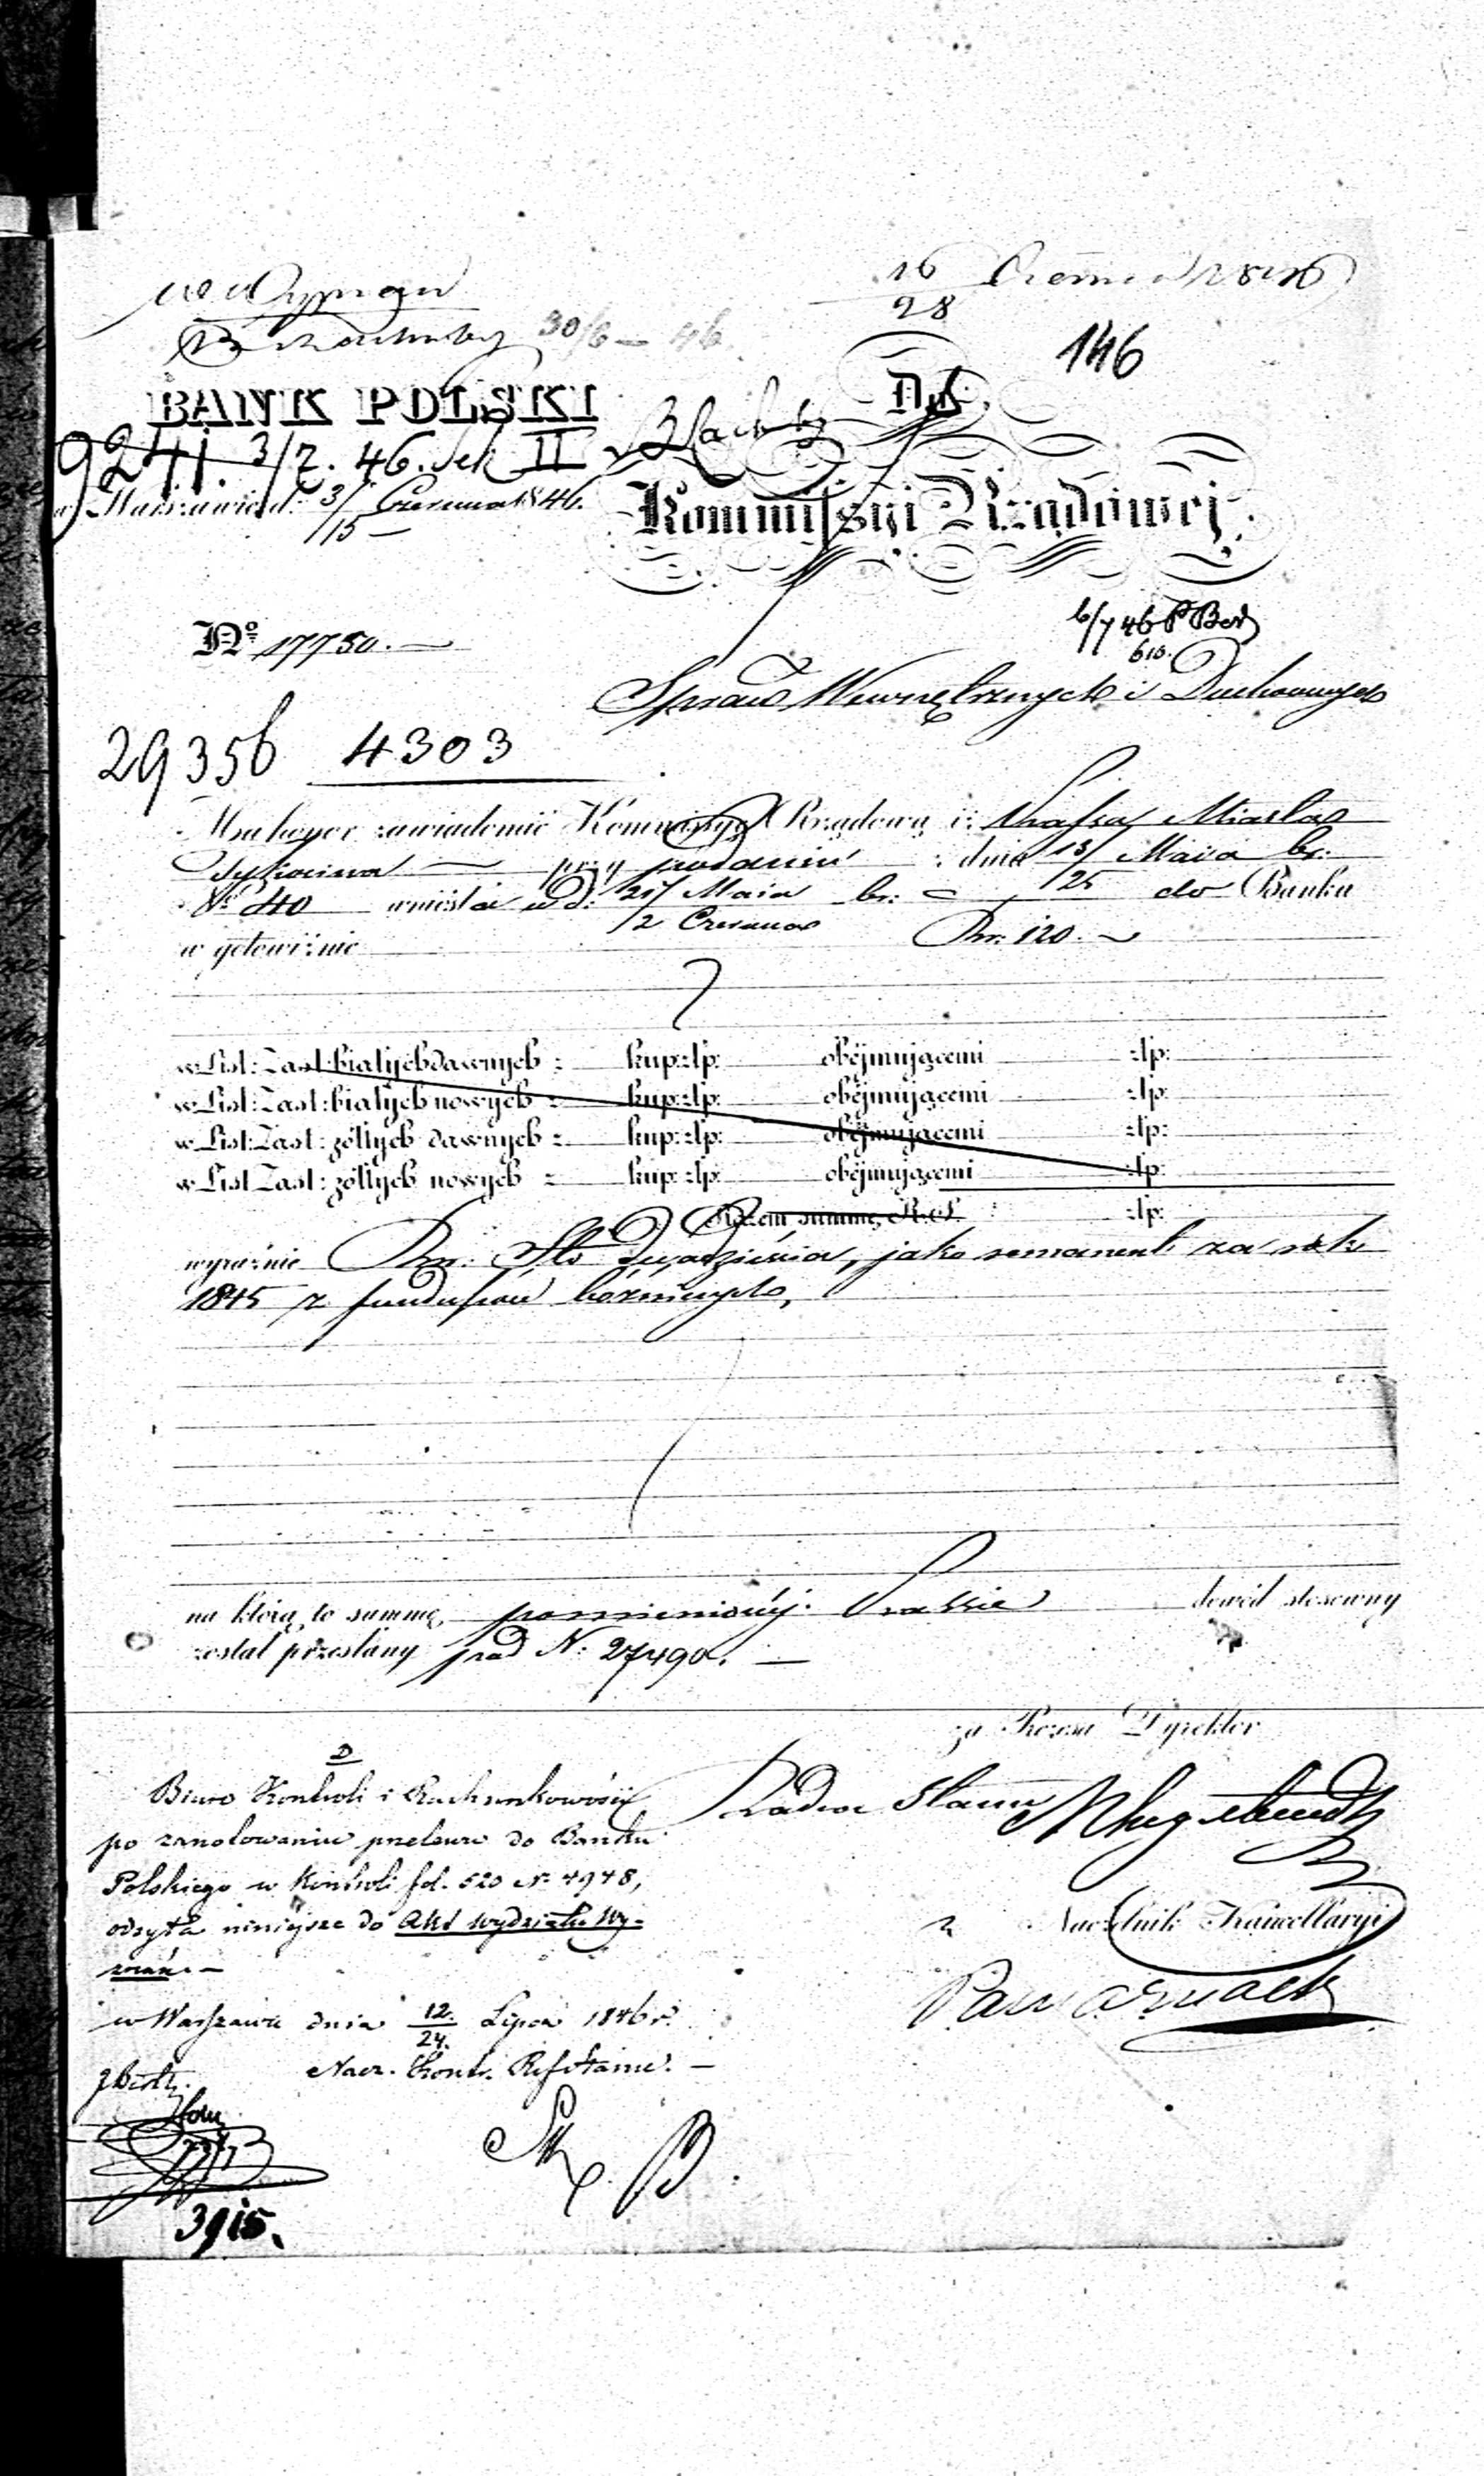 16/28 Czerwca 1846
W Wyznań
30/6 – 46.
146
BANK POLSKI
Do
9241. 3/7. 46. Sek II
w Warszawie d: 3/15 Czerwca 1846.
Kommissyi Rządowej
6/7 46 P Bor
No 17750.—
Spraw Wewnętrznych i Duchownych
29356 4303
Ma honor zawiadomić Kommissyą Rządową iż Kassa Miasta
przy podaniu z dnia 13/25 Maia br:
No 40 wniosła w d: 21/2 Maia/Czerwca br: do Banku
w gotowiźnie Rsr. 120.—
w List: Zast: białych dawnych z kup: złp: obejmującemi złp:
w List: Zast: białych nowych z kup: złp: obejmującemi złp:
w List: Zast: żółtych dawnych z kup: złp: obejmującemi złp:
w List Zast: żółtych nowych z kup: złp: obejmującemi złp:
Razem summę R.S. złp:
wyraźnie Rsr. Sto dwadzieścia, jako remanent za rok
1845 z funduszów bóżniczych,
na którą to summę, pomienionéj Kassie dowód stosowny
został przesłany pod N: 27490.—
za Prezesa Dyrektor
Radca Stanu
D
Biuro Kontroli i Rachunkowości
po zanotowaniu przelewu do Banku
Polskiego w Kontroli fol. 520 N. 4948,
odsyła niniejsze do Akt wydziału Wy-
znań.—
Naczelnik Kancellaryi
w Warszawie dnia 12./24. Lipca 1846 r.
Nacz. Kontr.
3915.